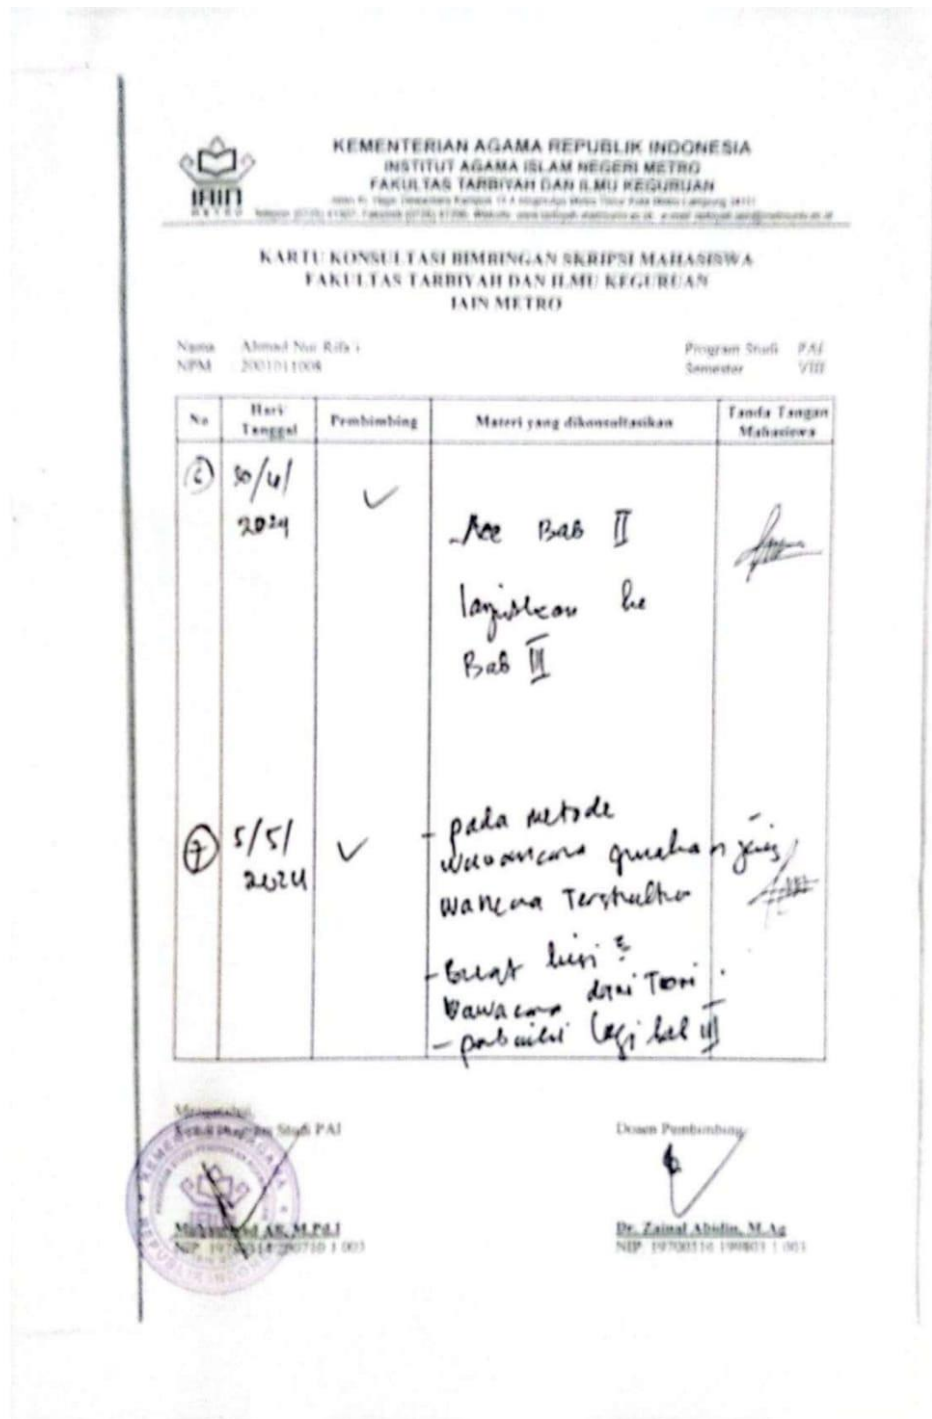 KEMENTERIAN AGAMA REPUBLIK INDONESIA
INSTITUT AGAMA ISLAM NEGERI METRO
FAKULTAS TARBIYAH DAN ILMU KEGURUAN
IAIN
METRO
KARTU KONSULTASI BIMBINGAN SKRIPSI MAHASISWA
FAKULTAS TARBIYAH DAN ILMU KEGURUAN
IAIN METRO
Nama : Ahmad Nur Rifa'i Program Studi : PAI
NPM : 2001011008 Semester : VIII
No Hari/ Tanggal Pembimbing Materi yang dikonsultasikan Tanda Tangan Mahasiswa
6 30/4/ 2024 ✓
- Acc Bab II
lanjutkan ke
Bab III
7 5/5/ 2024 ✓
- pada metode
wawancara gunakan jenis
- Buat kisi
dari Teori
- perbaiki lagi bab III
Mengetahui,
Program Studi PAI Dosen Pembimbing
Muhammad Ali, M.Pd.I Dr. Zainal Abidin, M.Ag
NIP. NIP. 19700316 199803 1 003